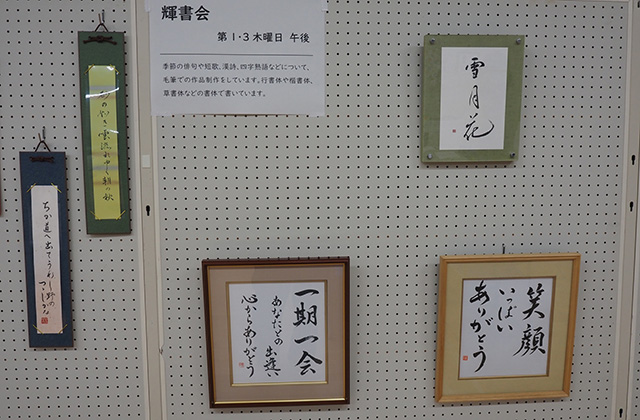 輝書会
第1・3木曜日 午後
季節の俳句や短歌、漢詩、四字熟語などについて、
毛筆での作品制作をしています。行書体や楷書体、
草書体などの書体で書いています。
雪月花
ちか道へ出てうれし野の
つゝじかな
一期一会
あなたとの出逢い
心からありがとう
笑顔
いっぱい
ありがとう